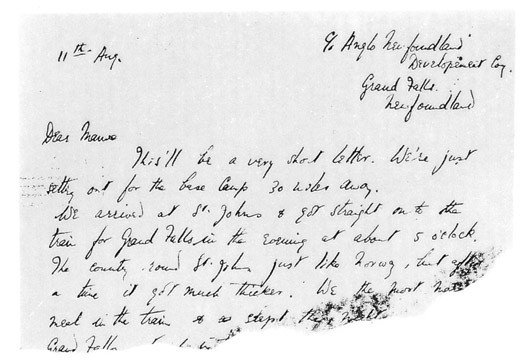 11th Aug.
c/o Anglo Newfoundland
Development Coy.
Grand Falls.
Newfoundland
Dear
This'll be a very short letter. We're just
setting out for the base camp 30 miles away.
We arrived at St. Johns & got straight on to the
train for Grand Falls, in the evening at about 5 o'clock.
The country round St. Johns just like Norway, but after
a time it got much thicker. We the most
meal in the train & so slept the
Grand Falls